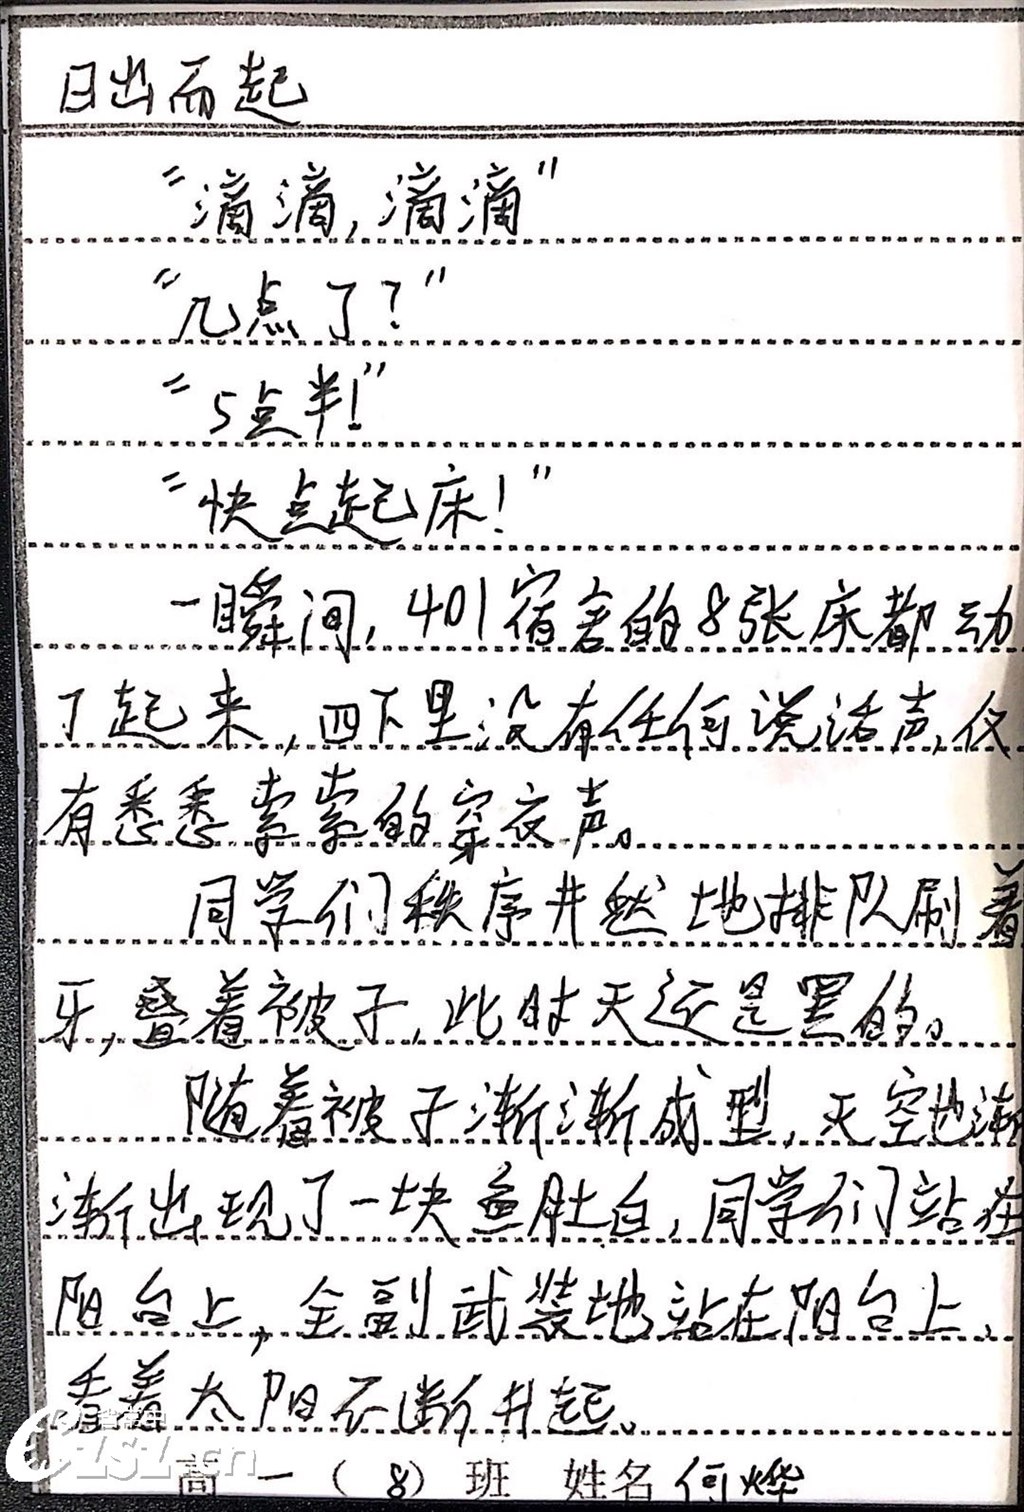 日出而起
“滴滴，滴滴”
“几点了？”
“5点半！”
“快点起床！”
一瞬间，401宿舍的8张床都动
了起来，四下里没有任何说话声，仅
有悉悉索索的穿衣声。
同学们秩序井然地排队刷着
牙，叠着被子，此时天还是黑的。
随着被子渐渐成型，天空也渐
渐出现了一块鱼肚白，同学们站在
阳台上，全副武装地站在阳台上，
看着太阳不断升起。
省常中
CZSZ.cn
高一（8）班 姓名何烨